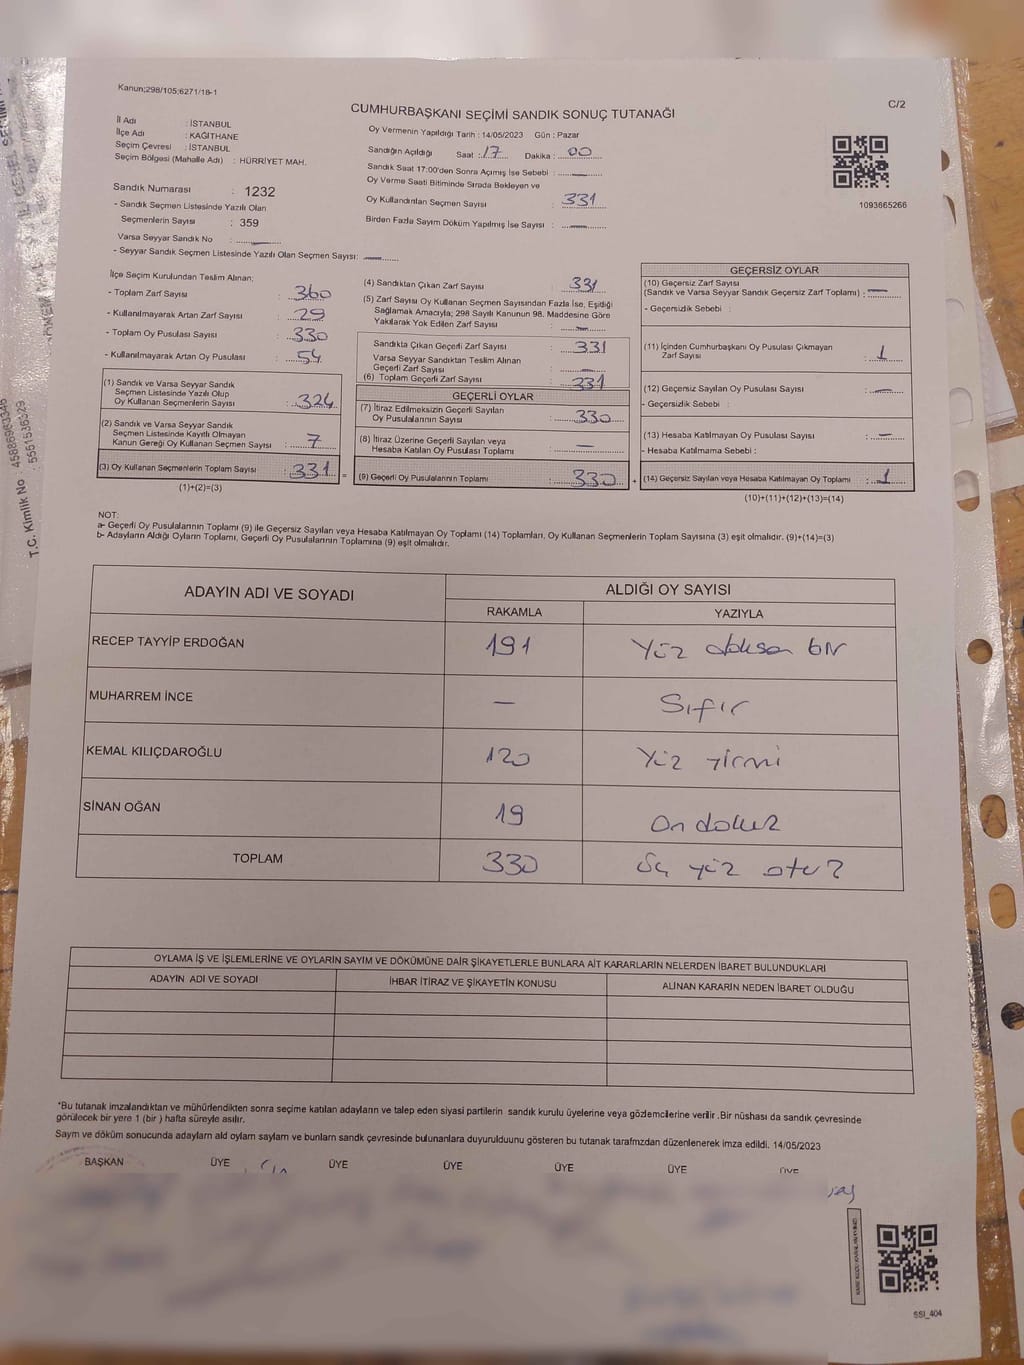 Kanun;298/105;6271/18-1
C/2
CUMHURBAŞKANI SEÇİMİ SANDIK SONUÇ TUTANAĞI
İl Adı : İSTANBUL
İlçe Adı : KAĞITHANE
Seçim Çevresi : İSTANBUL
Seçim Bölgesi (Mahalle Adı) : HÜRRİYET MAH.
Sandık Numarası : 1232
- Sandık Seçmen Listesinde Yazılı Olan
Seçmenlerin Sayısı : 359
Varsa Seyyar Sandık No : —
- Seyyar Sandık Seçmen Listesinde Yazılı Olan Seçmen Sayısı: —
Oy Vermenin Yapıldığı Tarih : 14/05/2023 Gün : Pazar
Sandığın Açıldığı Saat : 17 Dakika : 00
Sandık Saat 17:00'den Sonra Açımış İse Sebebi : —
Oy Verme Saati Bitiminde Sırada Bekleyen ve
Oy Kullandırılan Seçmen Sayısı : 331
Birden Fazla Sayım Döküm Yapılmış İse Sayısı : —
1093665266
İlçe Seçim Kurulundan Teslim Alınan;
- Toplam Zarf Sayısı : 360
- Kullanılmayarak Artan Zarf Sayısı : 29
- Toplam Oy Pusulası Sayısı : 330
- Kullanılmayarak Artan Oy Pusulası : 54
(1) Sandık ve Varsa Seyyar Sandık
Seçmen Listesinde Yazılı Olup
Oy Kullanan Seçmenlerin Sayısı : 324
(2) Sandık ve Varsa Seyyar Sandık
Seçmen Listesinde Kayıtlı Olmayan
Kanun Gereği Oy Kullanan Seçmen Sayısı : 7
(3) Oy Kullanan Seçmenlerin Toplam Sayısı : 331 =
(1)+(2)=(3)
(4) Sandıktan Çıkan Zarf Sayısı : 331
(5) Zarf Sayısı Oy Kullanan Seçmen Sayısından Fazla İse, Eşitliği
Sağlamak Amacıyla; 298 Sayılı Kanunun 98. Maddesine Göre
Yakılarak Yok Edilen Zarf Sayısı : —
Sandıkta Çıkan Geçerli Zarf Sayısı : 331
Varsa Seyyar Sandıktan Teslim Alınan
Geçerli Zarf Sayısı : —
(6) Toplam Geçerli Zarf Sayısı : 331
GEÇERLİ OYLAR
(7) İtiraz Edilmeksizin Geçerli Sayılan
Oy Pusulalarının Sayısı : 330
(8) İtiraz Üzerine Geçerli Sayılan veya
Hesaba Katılan Oy Pusulası Toplamı : —
(9) Geçerli Oy Pusulalarının Toplamı : 330 +
GEÇERSİZ OYLAR
(10) Geçersiz Zarf Sayısı
(Sandık ve Varsa Seyyar Sandık Geçersiz Zarf Toplamı) : —
- Geçersizlik Sebebi :
(11) İçinden Cumhurbaşkanı Oy Pusulası Çıkmayan
Zarf Sayısı : 1
(12) Geçersiz Sayılan Oy Pusulası Sayısı : —
- Geçersizlik Sebebi :
(13) Hesaba Katılmayan Oy Pusulası Sayısı : —
- Hesaba Katılmama Sebebi :
(14) Geçersiz Sayılan veya Hesaba Katılmayan Oy Toplamı : 1
(10)+(11)+(12)+(13)=(14)
NOT:
a- Geçerli Oy Pusulalarının Toplamı (9) ile Geçersiz Sayılan veya Hesaba Katılmayan Oy Toplamı (14) Toplamları, Oy Kullanan Seçmenlerin Toplam Sayısına (3) eşit olmalıdır. (9)+(14)=(3)
b- Adayların Aldığı Oyların Toplamı, Geçerli Oy Pusulalarının Toplamına (9) eşit olmalıdır.
ADAYIN ADI VE SOYADI ALDIĞI OY SAYISI
RAKAMLA YAZIYLA
RECEP TAYYİP ERDOĞAN 191 Yüz doksan bir
MUHARREM İNCE — Sıfır
KEMAL KILIÇDAROĞLU 120 Yüz yirmi
SİNAN OĞAN 19 On dokuz
TOPLAM 330 üç yüz otuz
OYLAMA İŞ VE İŞLEMLERİNE VE OYLARIN SAYIM VE DÖKÜMÜNE DAİR ŞİKAYETLERLE BUNLARA AİT KARARLARIN NELERDEN İBARET BULUNDUKLARI
ADAYIN ADI VE SOYADI İHBAR İTİRAZ VE ŞİKAYETİN KONUSU ALINAN KARARIN NEDEN İBARET OLDUĞU
*Bu tutanak imzalandıktan ve mühürlendikten sonra seçime katılan adayların ve talep eden siyasi partilerin sandık kurulu üyelerine veya gözlemcilerine verilir .Bir nüshası da sandık çevresinde
görülecek bir yere 1 (bir ) hafta süreyle asılır.
Sayım ve döküm sonucunda adayların ald oyların sayları ve bunların sandk çevresinde bulunanlara duyurulduunu gösteren bu tutanak tarafmzdan düzenlenerek imza edildi. 14/05/2023
BAŞKAN ÜYE ÜYE ÜYE ÜYE ÜYE ÜYE
SSI_404
T.C. Kimlik No : 45886963346
: 5551536329